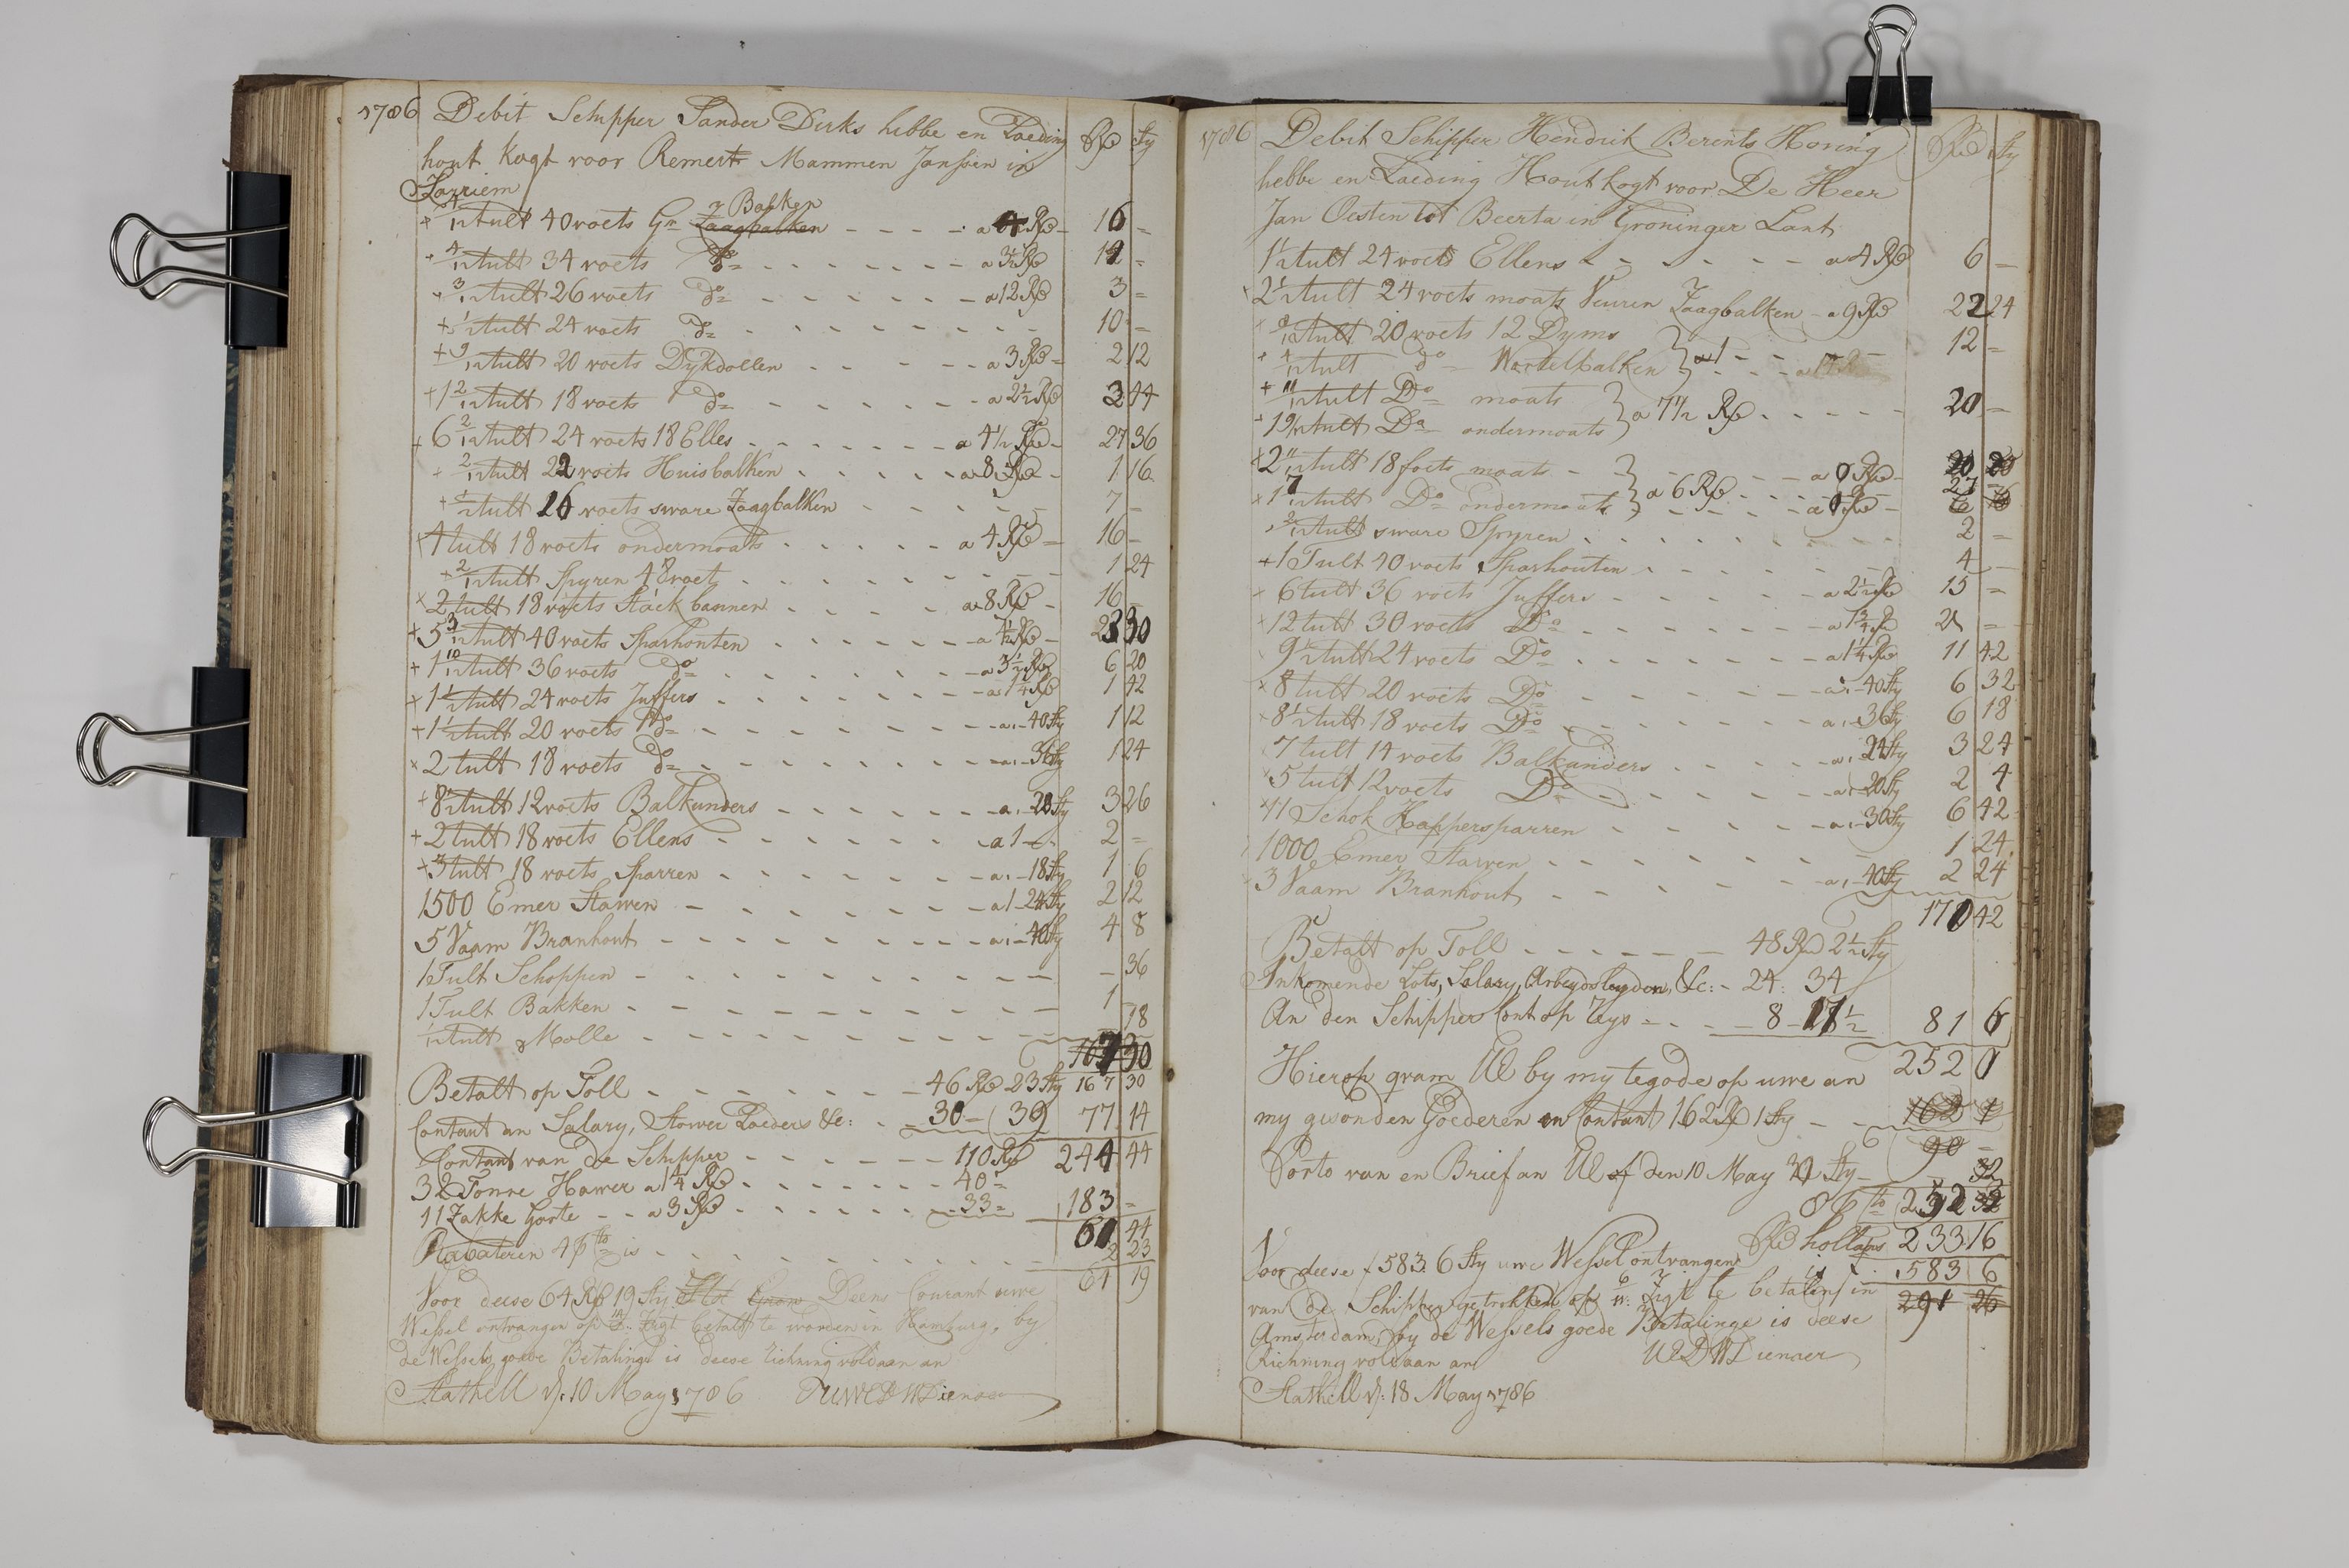 1786 Debit Schipper Sander Dirks hebbe en Laeding Rd sty
hout kogt voor Remert Mammen Janssen in
Jarriem
+ 4/12 tult 40 voets Gr Balken - - - - a 4 Rd - 16 =
+ 4/12 tult 34 voets do - - - - a 3½ Rd 14 =
+ 3/12 tult 26 voets do - - - - a 12 Rd 3 =
+ ½ tult 24 voets do - - - - 10 =
+ 9/12 tult 20 voets Dykdollen - - - - a 3 Rd - 2 12
+ 1 2/12 tult 18 voets do - - - - a 2½ Rd 2 44
+ 6 2/12 tult 24 voets 18 Elles - - - - a 4½ Rd - 27 36
+ 2/12 tult 22 voets Huisbalken - - - - a 8 Rd - 1 16
+ ½ tult 26 voets sware Zaagbalken - - - - 7 -
+ 4 tult 18 voets ondermoats - - - - a 4 Rd - 16 -
+ 2/12 tult Spyren 48 voet - - - - 1 24
+ 2 tult 18 voets Stack bannen - - - - a 8 Rd - 16 -
+ 5 3/12 tult 40 voets Sparhouten - - - - a 4½ Rd - 23 30
+ 1 10/12 tult 36 voets do - - - - a 3½ Rd 6 20
+ 1½ tult 24 voets Juffers - - - - a 1¼ Rd 1 42
+ 1½ tult 20 voets do - - - - a - 40 sty 1 12
+ 2 tult 18 voets do - - - - a - 36 sty 1 24
+ 8½ tult 12 voets Balkunders - - - - a - 20 sty 3 26
+ 2 tult 18 voets Ellens - - - - a 1 - 2 =
+ 3 tult 18 voets Sparren - - - - a - 18 sty 1 6
1500 Emer Stawen - - - - a 1 - 24 sty 2 12
5 Vaam Branhout - - - - a - 40 sty 4 8
1 Tult Schoppen - - - - - 36
1 Tult Bakken - - - - 1
½ tult Molle - - - - 18
167 30
Betalt op Toll - - - - 46 Rd 23 sty 167 30
Contant an Salary, Stower Laeders &c: - 30 - 39 77 14
Contant van de Schipper - - - - 110 Rd 244 44
32 Tonne Hawer a 1¼ Rd - - - - 40 =
11 Zakke Gorte - - a 3 Rd - - - - 33 = 183 =
61 44
Rabateren 4 p to is - - - - 2 23
64 19
Voor deese 64 Rd 19 sty Deens Courant uwe
Wessel ontvangen op Zigt betalt te worden in Hamburg, by
de Wessels goede Betalinge is deese Rickning voldaan an
Stathell d: 10 May 1786 UWEDWDienaer
1786 Debit Schipper Hendrik Berents Koning Rd sty
hebbe en Laeding Hout kogt voor De Heer
Jan Oesten tot Beerta in Groninger Lant
1½ tult 24 voets Ellens - - - - a 4 Rd 6 =
2½ tult 24 voets moats Veuren Zaagbalken - a 9 Rd 22 24
+ 8/12 tult 20 voets 12 Dyms
+ 4/12 tult do Wortelbalken - - - - 12 =
+ 11/12 tult Do moats
+ 1 9/12 tult Do ondermoats } a 7½ Rd - - - - 20 =
+ 2 11/12 tult 18 foets moats - - - -
+ 1 7/12 tult Do ondermoats } a 6 Rd - - - - 27 =
2/12 tult sware Spyren - - - - 2 =
+ 1 Tult 40 voets Sparhouten - - - - 4 -
+ 6 tult 36 voets Juffers - - - - a 2½ Rd 15 =
+ 12 tult 30 voets Do - - - - a 1¾ Rd 21 =
9½ tult 24 voets Do - - - - a 1¼ Rd 11 42
+ 8 tult 20 voets Do - - - - a - 40 sty 6 32
+ 8½ tult 18 voets Do - - - - a - 36 sty 6 18
7 tult 14 voets Balkunders - - - - a - 24 sty 3 24
+ 5 tult 12 voets Do - - - - a - 20 sty 2 4
11 Schok Happersparren - - - - a - 30 sty 6 42
1000 Emer Stawen - - - - 1 24
3 Vaam Branhout - - - - a - 40 sty 2 24
170 42
Betalt op Toll - - - - 48 Rd 2½ sty
Inkomende Lots, Salary, Arbeydsloydon, &c: - 24: 34
An den Schipper Cont op Reys - - - 8 - 17½ 81 6
252 0
Hierop qvam UE by my tegode op uwe an
my gesonden Goederen en Contant 162 Rd 1 sty - - 162 1
90 =
Porto van en Brief an UE of den 10 May 32 sty - 32
8 p to
Rd hollans 233 16
Voor deese f 583. 6 sty uwe Wessel ontvangen is f. 583 6
van de Schipper getrokken op Zigt te betalen in 291 26
Amsterdam, by de Wessels goede Betalinge is deese
Rickning voldaan an UEDWDienaer
Stathell d: 18 May 1786